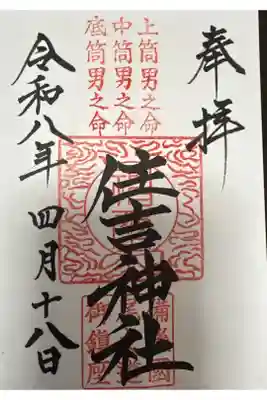 奉拝
上筒男之命
中筒男之命
底筒男之命
住吉神社
御鎮座
令和八年四月十八日